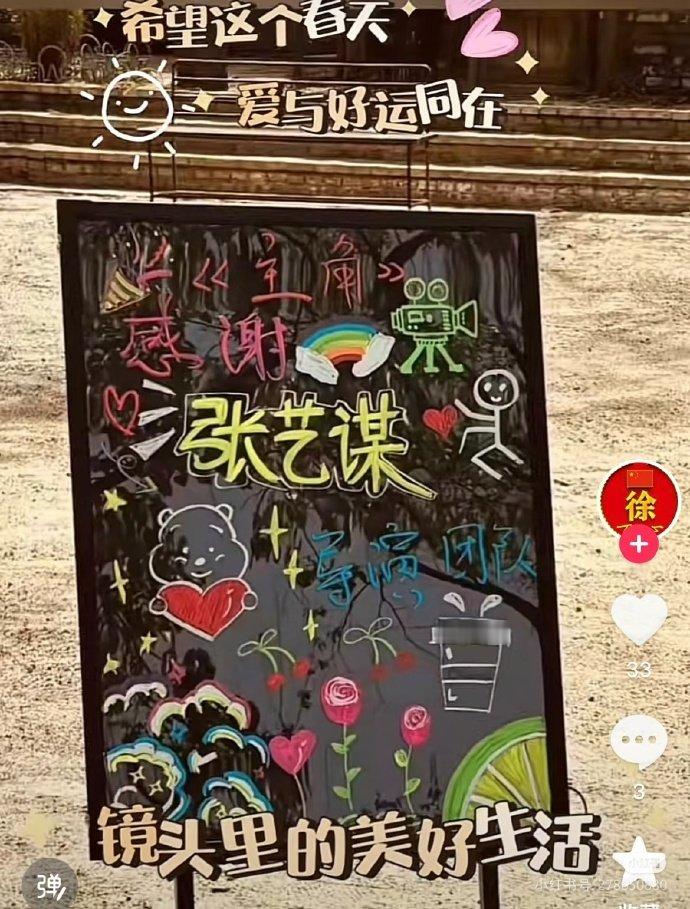 希望这个春天
爱与好运同在
《主角》
感谢
张艺谋
导演团队
镜头里的美好生活
徐
33
3
弹
小红书号:278650880
收藏